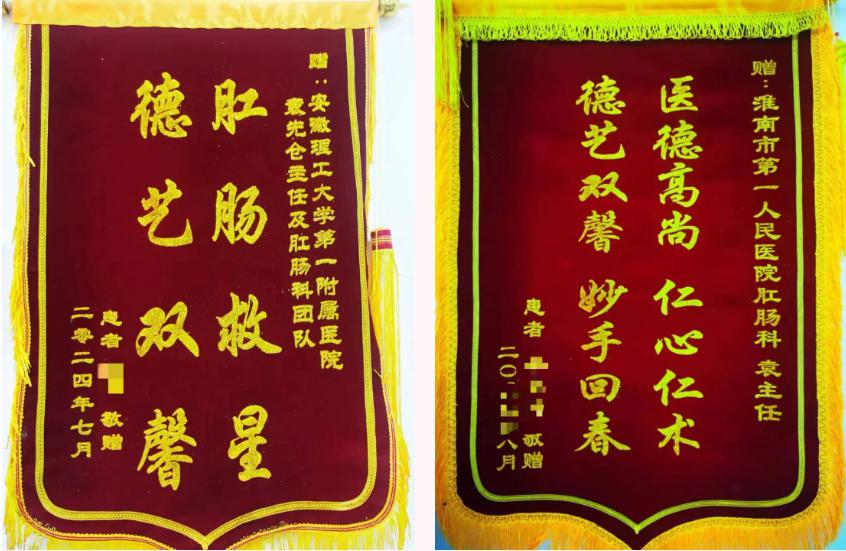 赠：安徽理工大学第一附属医院
袁先仓主任及肛肠科团队
肛肠救星
德艺双馨
患者 敬赠
二零二四年七月
赠：淮南市第一人民医院肛肠科 袁主任
医德高尚 仁心仁术
德艺双馨 妙手回春
患者 敬赠
二〇 八月